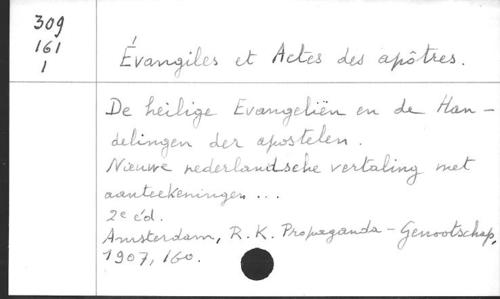 309
161
1
Évangiles et Actes des apôtres.
De heilige Evangeliën en de Han-
delingen der apostelen.
Nieuwe nederlandsche vertaling met
aanteekeningen ...
2e éd.
Amsterdam, R. K. Propaganda-Genootschap,
1907, 160.